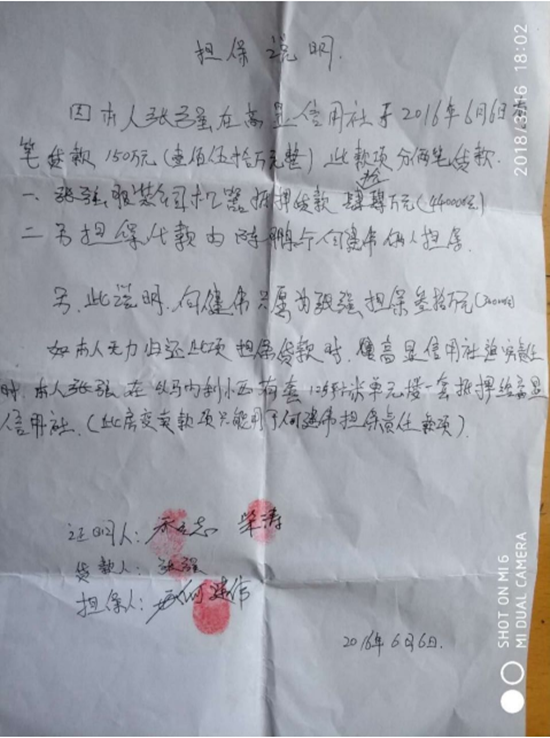 担保说明.
因本人张强在高显信用社于2016年6月6日
笔贷款150万元(壹佰伍拾万元整)此款项分俩笔贷款.
一、张强服装公司机器抵押贷款肆拾肆万元(440000元)
二 另担保代款由陈鹏与何建伟俩人担保.
另.此说明.何健伟只愿为张强担保叁拾万元(300000)
如本人无力归还此项担保贷款时.高显信用社追究责任
时.本人张强在 有套125平米单元楼一套抵押给高显
信用社.(此房变卖款项只能用于何建伟担保责任款项)
证明人: 梁涛
贷款人: 张强
担保人: 何建伟
2016年6月6日.
2018/3/16 18:02
SHOT ON MI 6
MI DUAL CAMERA